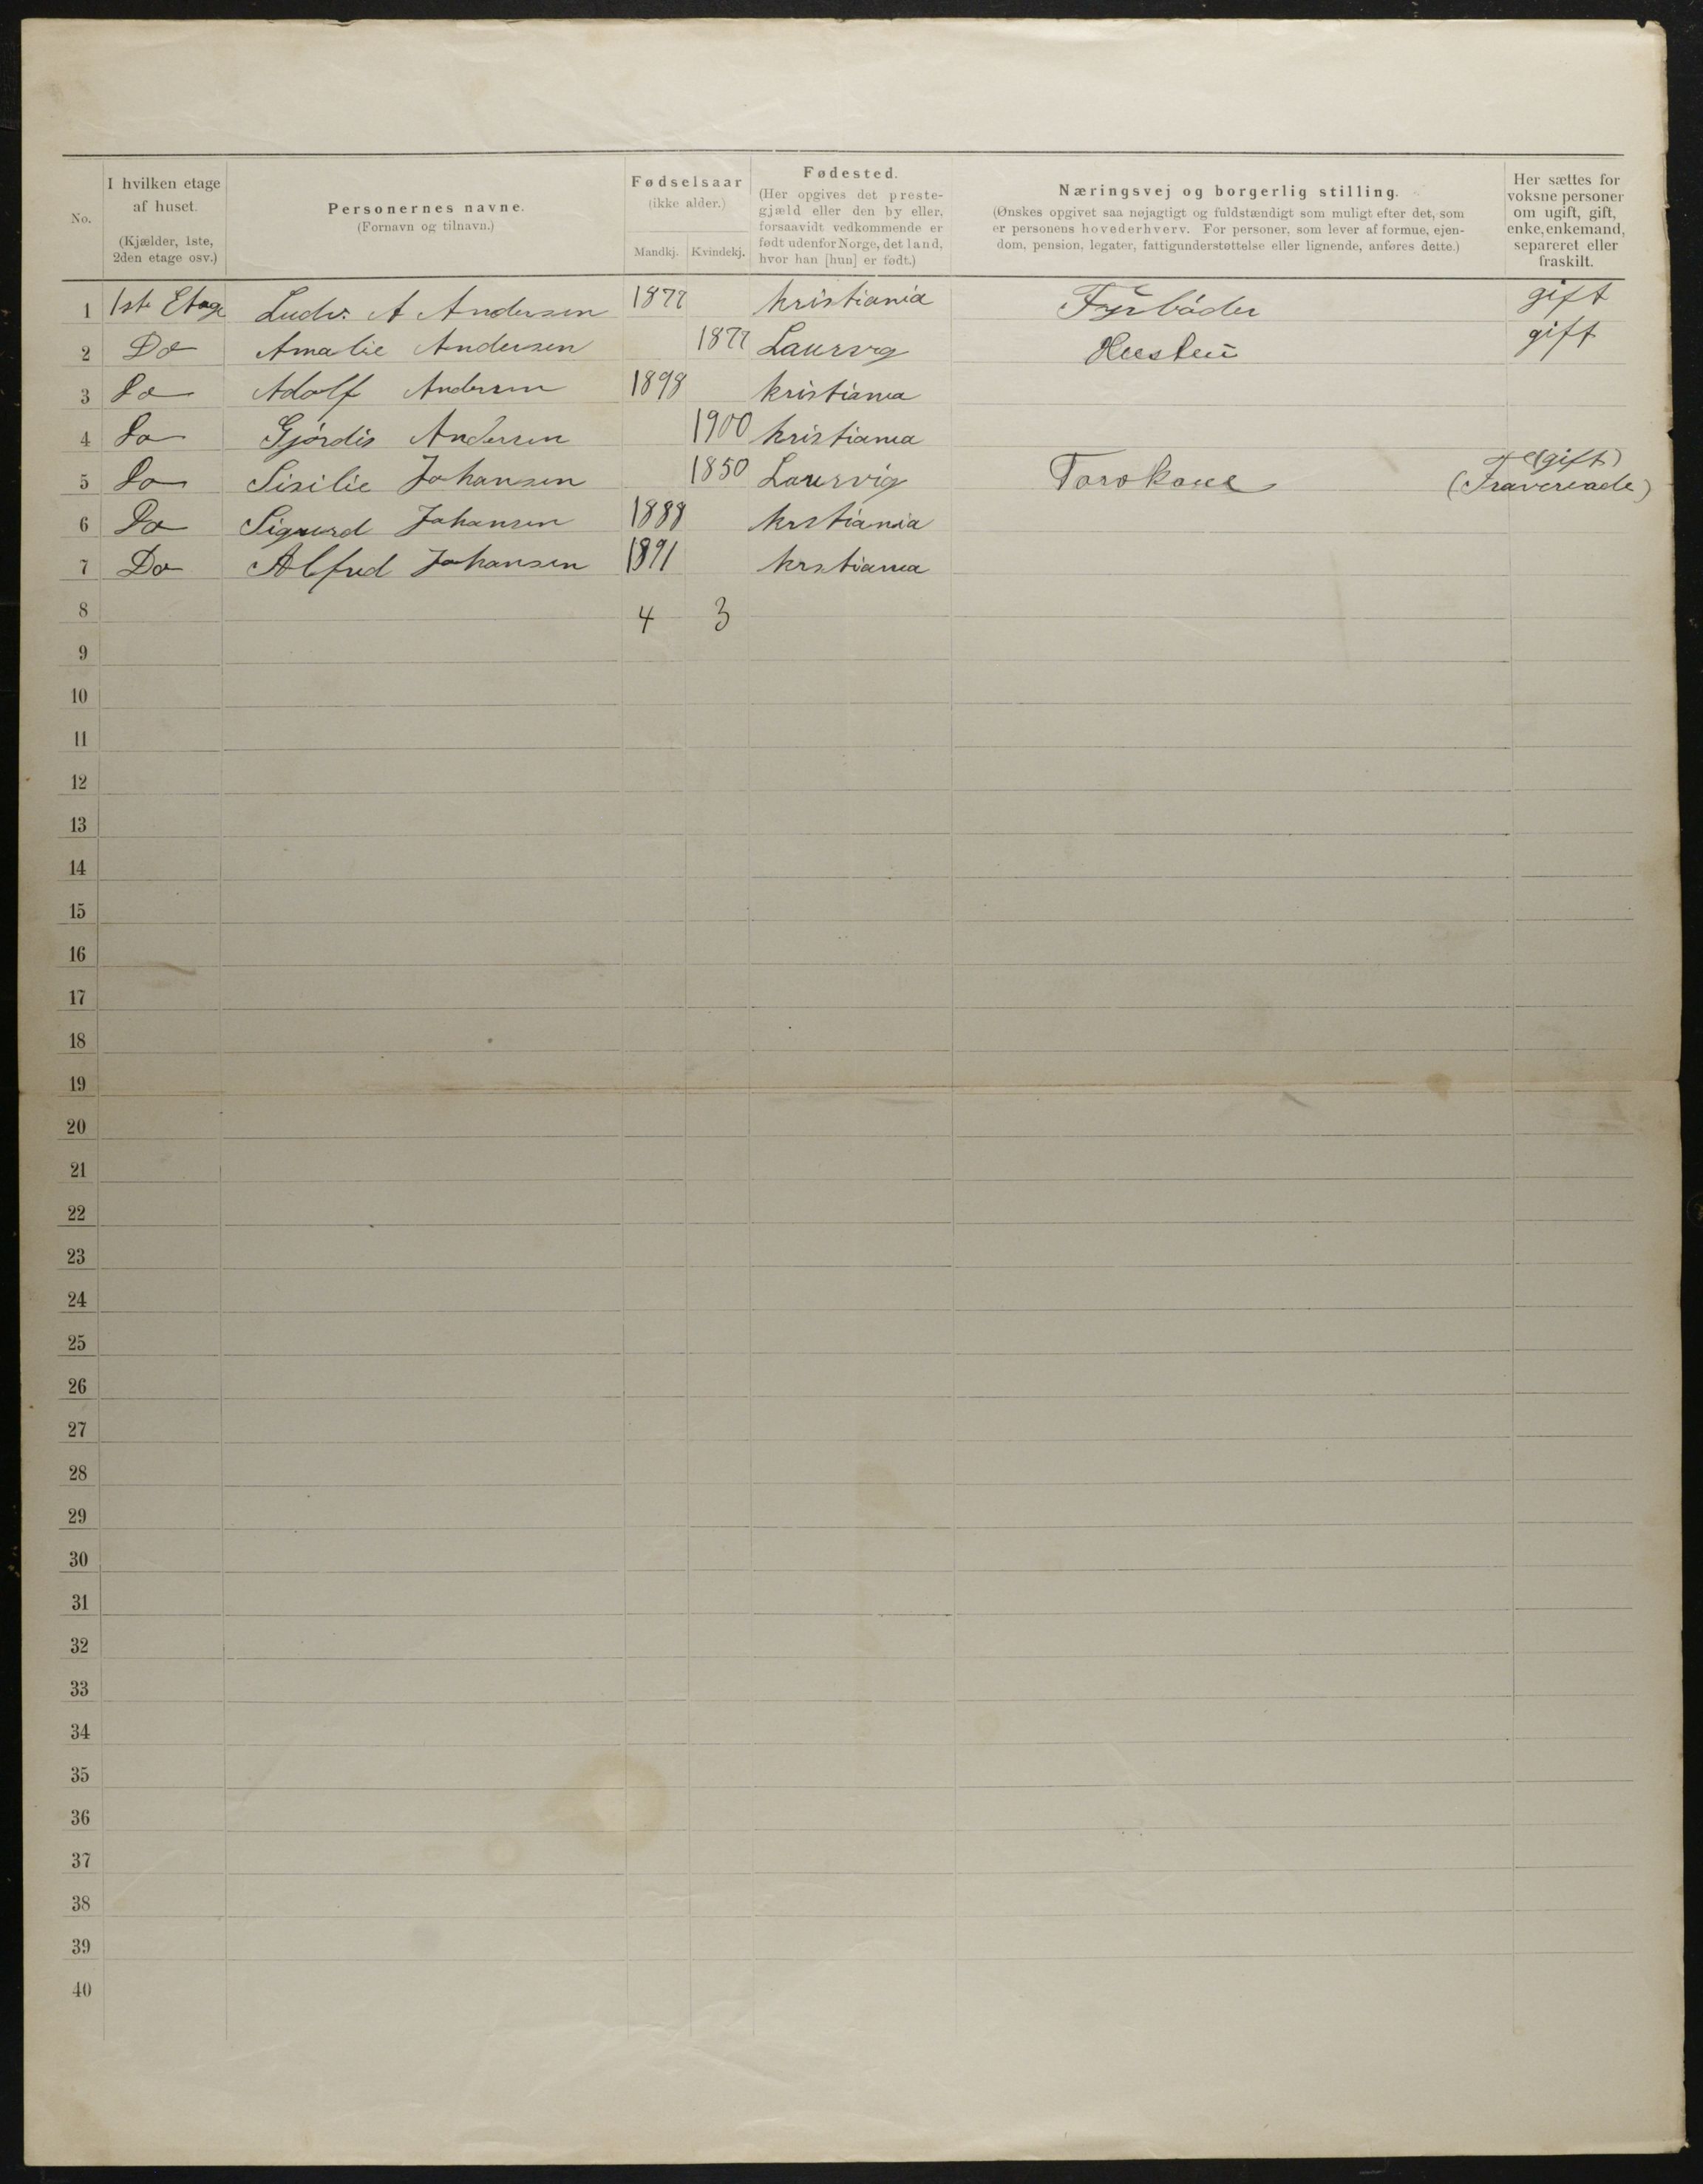 No.
I hvilken etage
af huset.
(Kjælder, 1ste,
2den etage osv.)
Personernes navne.
(Fornavn og tilnavn.)
Fødselsaar
(ikke alder.)
Mandkj. Kvindekj.
Fødested.
(Her opgives det preste-
gjæld eller den by eller,
forsaavidt vedkommende er
født udenfor Norge, det land,
hvor han [hun] er født.)
Næringsvej og borgerlig stilling.
(Ønskes opgivet saa nøjagtigt og fuldstændigt som muligt efter det, som
er personens hovederhverv. For personer, som lever af formue, ejen-
dom, pension, legater, fattigunderstøttelse eller lignende, anføres dette.)
Her sættes for
voksne personer
om ugift, gift,
enke, enkemand,
separeret eller
fraskilt.
1 1ste Etage Ludv. A Andersen 1877 Kristiania Fyrbøder gift
2 Do Amalie Andersen 1877 Laurvig gift
3 Do Adolf Andersen 1898 Kristiania
4 Do Gjördis Andersen 1900 Kristiania
5 Do Sisilie Johansen 1850 Laurvig (gift)
6 Do Sigurd Johansen 1888 Krstiania
7 Do Alfred Johansen 1891 Krstiania
8 4 3
9
10
11
12
13
14
15
16
17
18
19
20
21
22
23
24
25
26
27
28
29
30
31
32
33
34
35
36
37
38
39
40